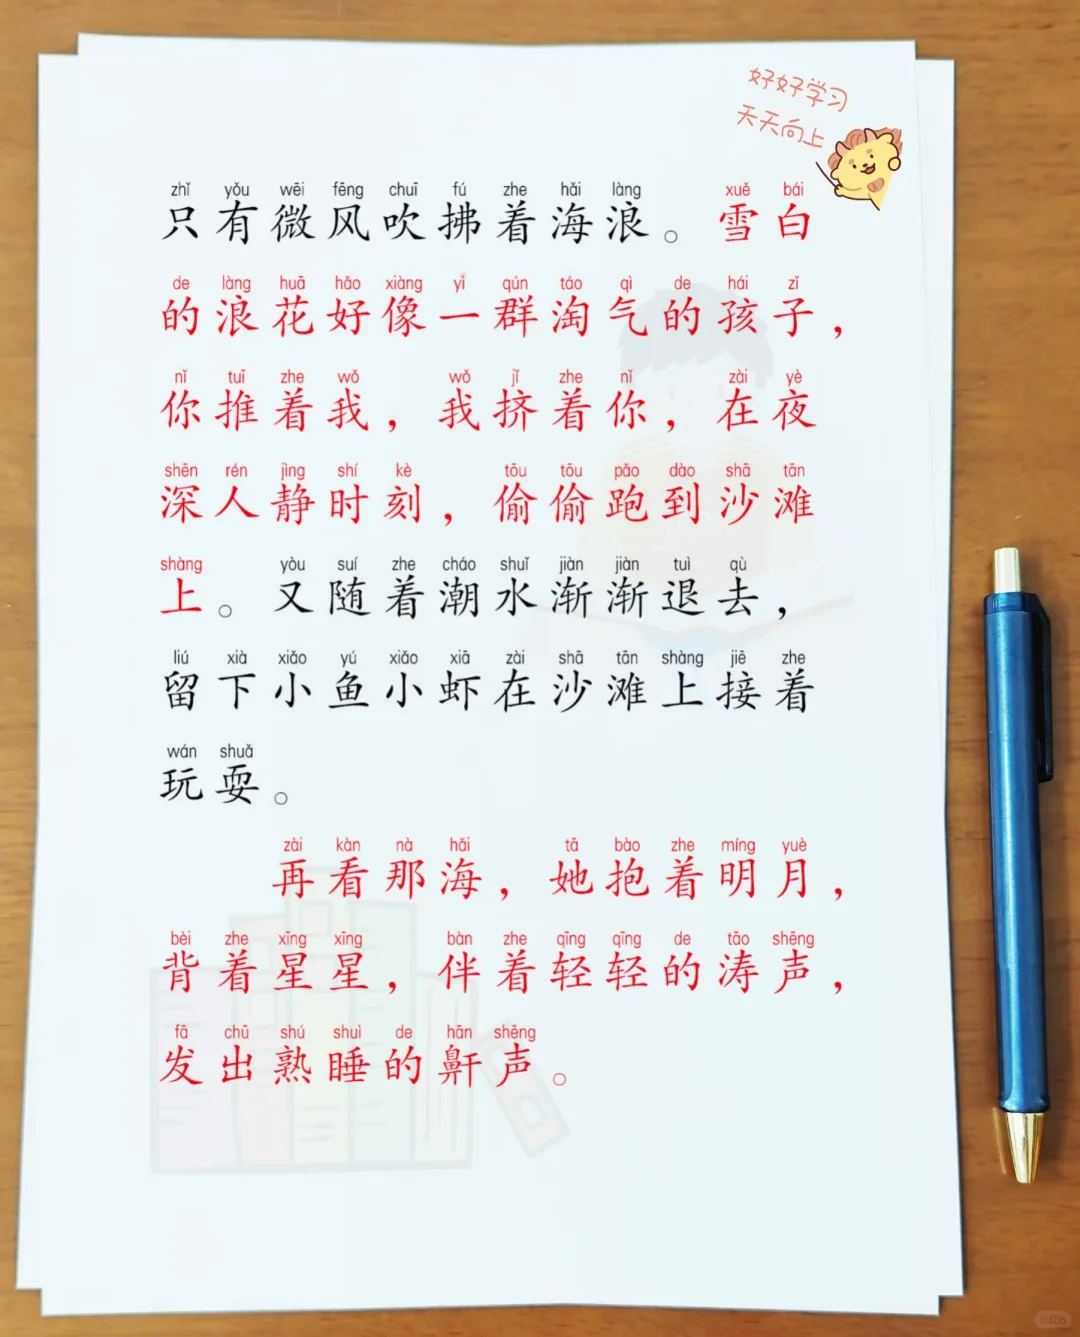 好好学习
天天向上
zhǐ yǒu wēi fēng chuī fú zhe hǎi làng xuě bái
只有微风吹拂着海浪。雪白
de làng huā hǎo xiàng yì qún táo qì de hái zǐ
的浪花好像一群淘气的孩子，
nǐ tuī zhe wǒ wǒ jǐ zhe nǐ zài yè
你推着我，我挤着你，在夜
shēn rén jìng shí kè tōu tōu pǎo dào shā tān
深人静时刻，偷偷跑到沙滩
shàng yòu suí zhe cháo shuǐ jiàn jiàn tuì qù
上。又随着潮水渐渐退去，
liú xià xiǎo yú xiǎo xiā zài shā tān shàng jiē zhe
留下小鱼小虾在沙滩上接着
wán shuǎ
玩耍。
zài kàn nà hǎi tā bào zhe míng yuè
再看那海，她抱着明月，
bèi zhe xīng xīng bàn zhe qīng qīng de tāo shēng
背着星星，伴着轻轻的涛声，
fā chū shú shuì de hān shēng
发出熟睡的鼾声。